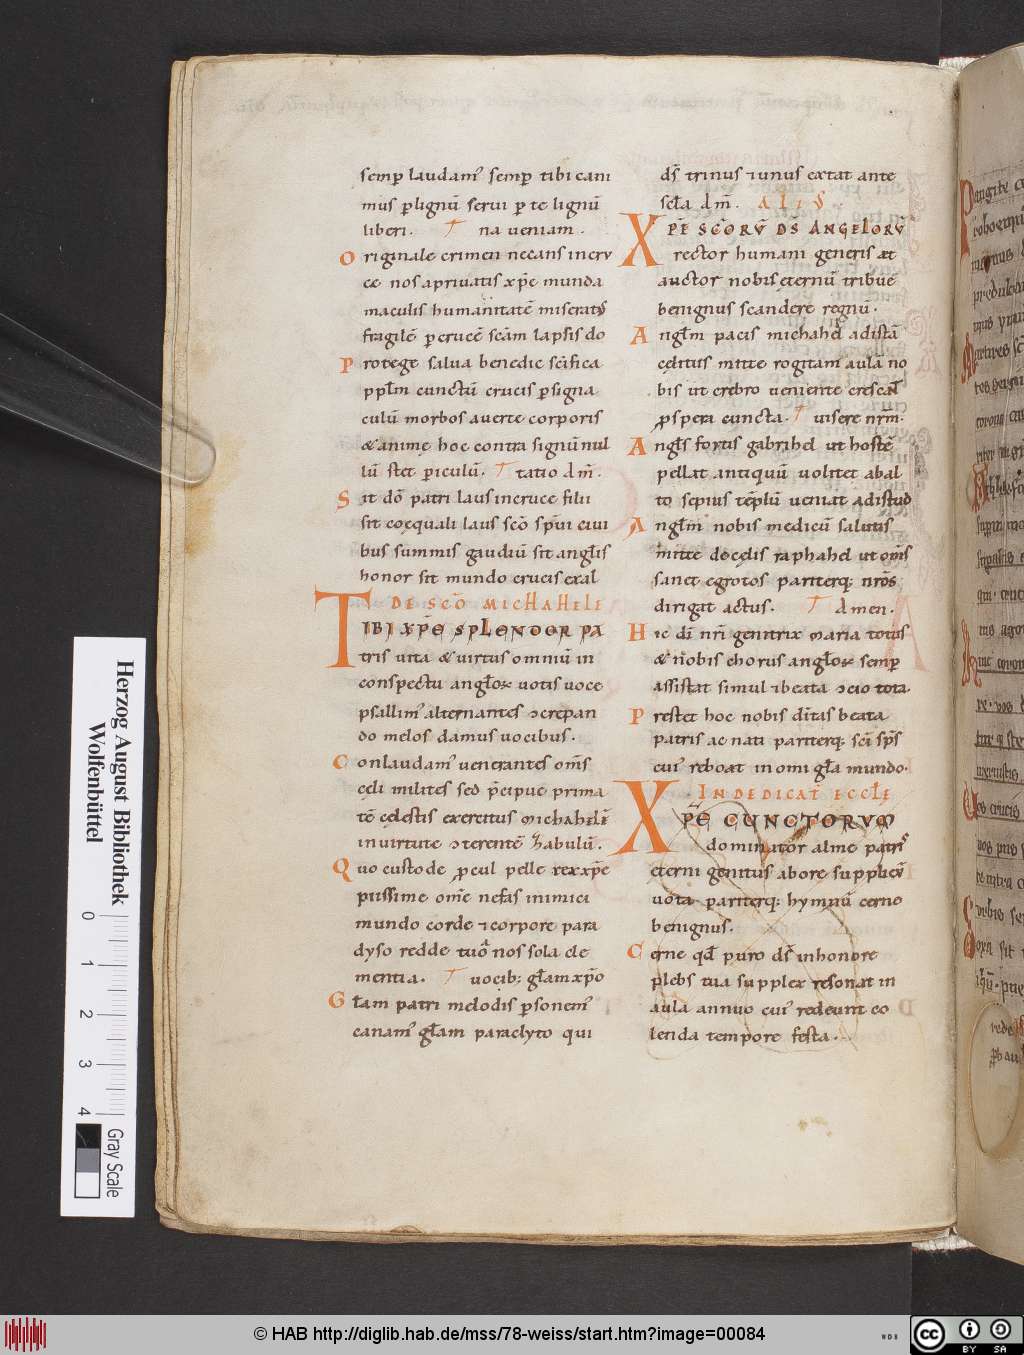 semp̄ laudam᷒ semp̄ tibi cani
mus p̱ lignū serui p̱ te lignū
liberi. T na ueniam.
Originale crimen necans in cru
ce nos a priuatis xp̄e munda
maculis humanitatē miserat᷒
fragilē p̱ crucē sc̄am lapsis do
Protege salua benedic sc̄ifica
pp̄lm cunctū crucis p̱ signa
culū morbos auerte corporis
& anime hoc contra signū nul
lū stet p̱iculū. T tatio dm̄.
Sit dō patri laus in cruce filii
sit coequali laus sc̄o sp̄ui ciui
bus summis gaudiū sit angl̄is
honor sit mundo crucis exal
DE SCŌ MICHAHELE
TIBI XP̄E SPLENDOR PA
tris uita & uirtus omniū in
conspectu angl̄oꝝ uotis uoce
psallim᷒ alternantes ↄcrepan
do melos damus uocibus.
Conlaudam᷒ uenerantes om̄s
cęli milites sed p̄cipue prima
tē cęlestis exercitus michahelē
in uirtute ↄterentē zabulū.
Quo custode p̱cul pelle rex xp̄e
piissime om̄e nefas inimici
mundo corde ⁊ corpore para
dyso redde tuo nos sola cle
mentia. T uocib; gl̄am xp̄o
Gl̄am patri melodis p̱sonem᷒
canam᷒ gl̄am paraclyto qui
ds̄ trinus ⁊ unus extat ante
scl̄a Am̄. ALIUS
XP̄E SCŌRŪ DS ANGELORŪ
rector humani generis &
auctor nobis ęternū tribue
benignus scandere regnū.
Angl̄m pacis michahel adistā
cęlitus mitte rogitam aulā no
bis ut crebro ueniente crescan̄t
p̱spera cuncta. T uisere nr̄m.
Angl̄s fortis gabrihel ut hostē
pellat antiquū uolitet ab al
to sepius tēplū ueniat adistud
Angl̄m nobis medicū salutis
mitte de cęlis raphahel ut om̄s
sanet egrotos pariterq; nr̄os
dirigat actus. T Amen.
Hic dī nr̄i genitrix maria totus
& nobis chorus angl̄oꝝ semp̄
assistat simul ⁊ beata ↄcio tota.
Prestet hoc nobis dītas beata
patris ac nati pariterq; sc̄i sp̄s
cui᷒ reboat in om̄i gl̄a mundo.
IN DEDICAT̄ ECCLĒ
XP̄E CUNCTORUM
dominator alme patris
ęterni genitus ab ore supplicū
uota pariterq; hymnū cerne
benignus.
Cerne qd̄ puro ds̄ in honore
plebs tua supplex resonat in
aula annuo cui᷒ redeunt co
lenda tempore festa.
Herzog August Bibliothek
Wolfenbüttel
0 1 2 3 4
Gray Scale
© HAB http://diglib.hab.de/mss/78-weiss/start.htm?image=00084
WDB
cc BY SA